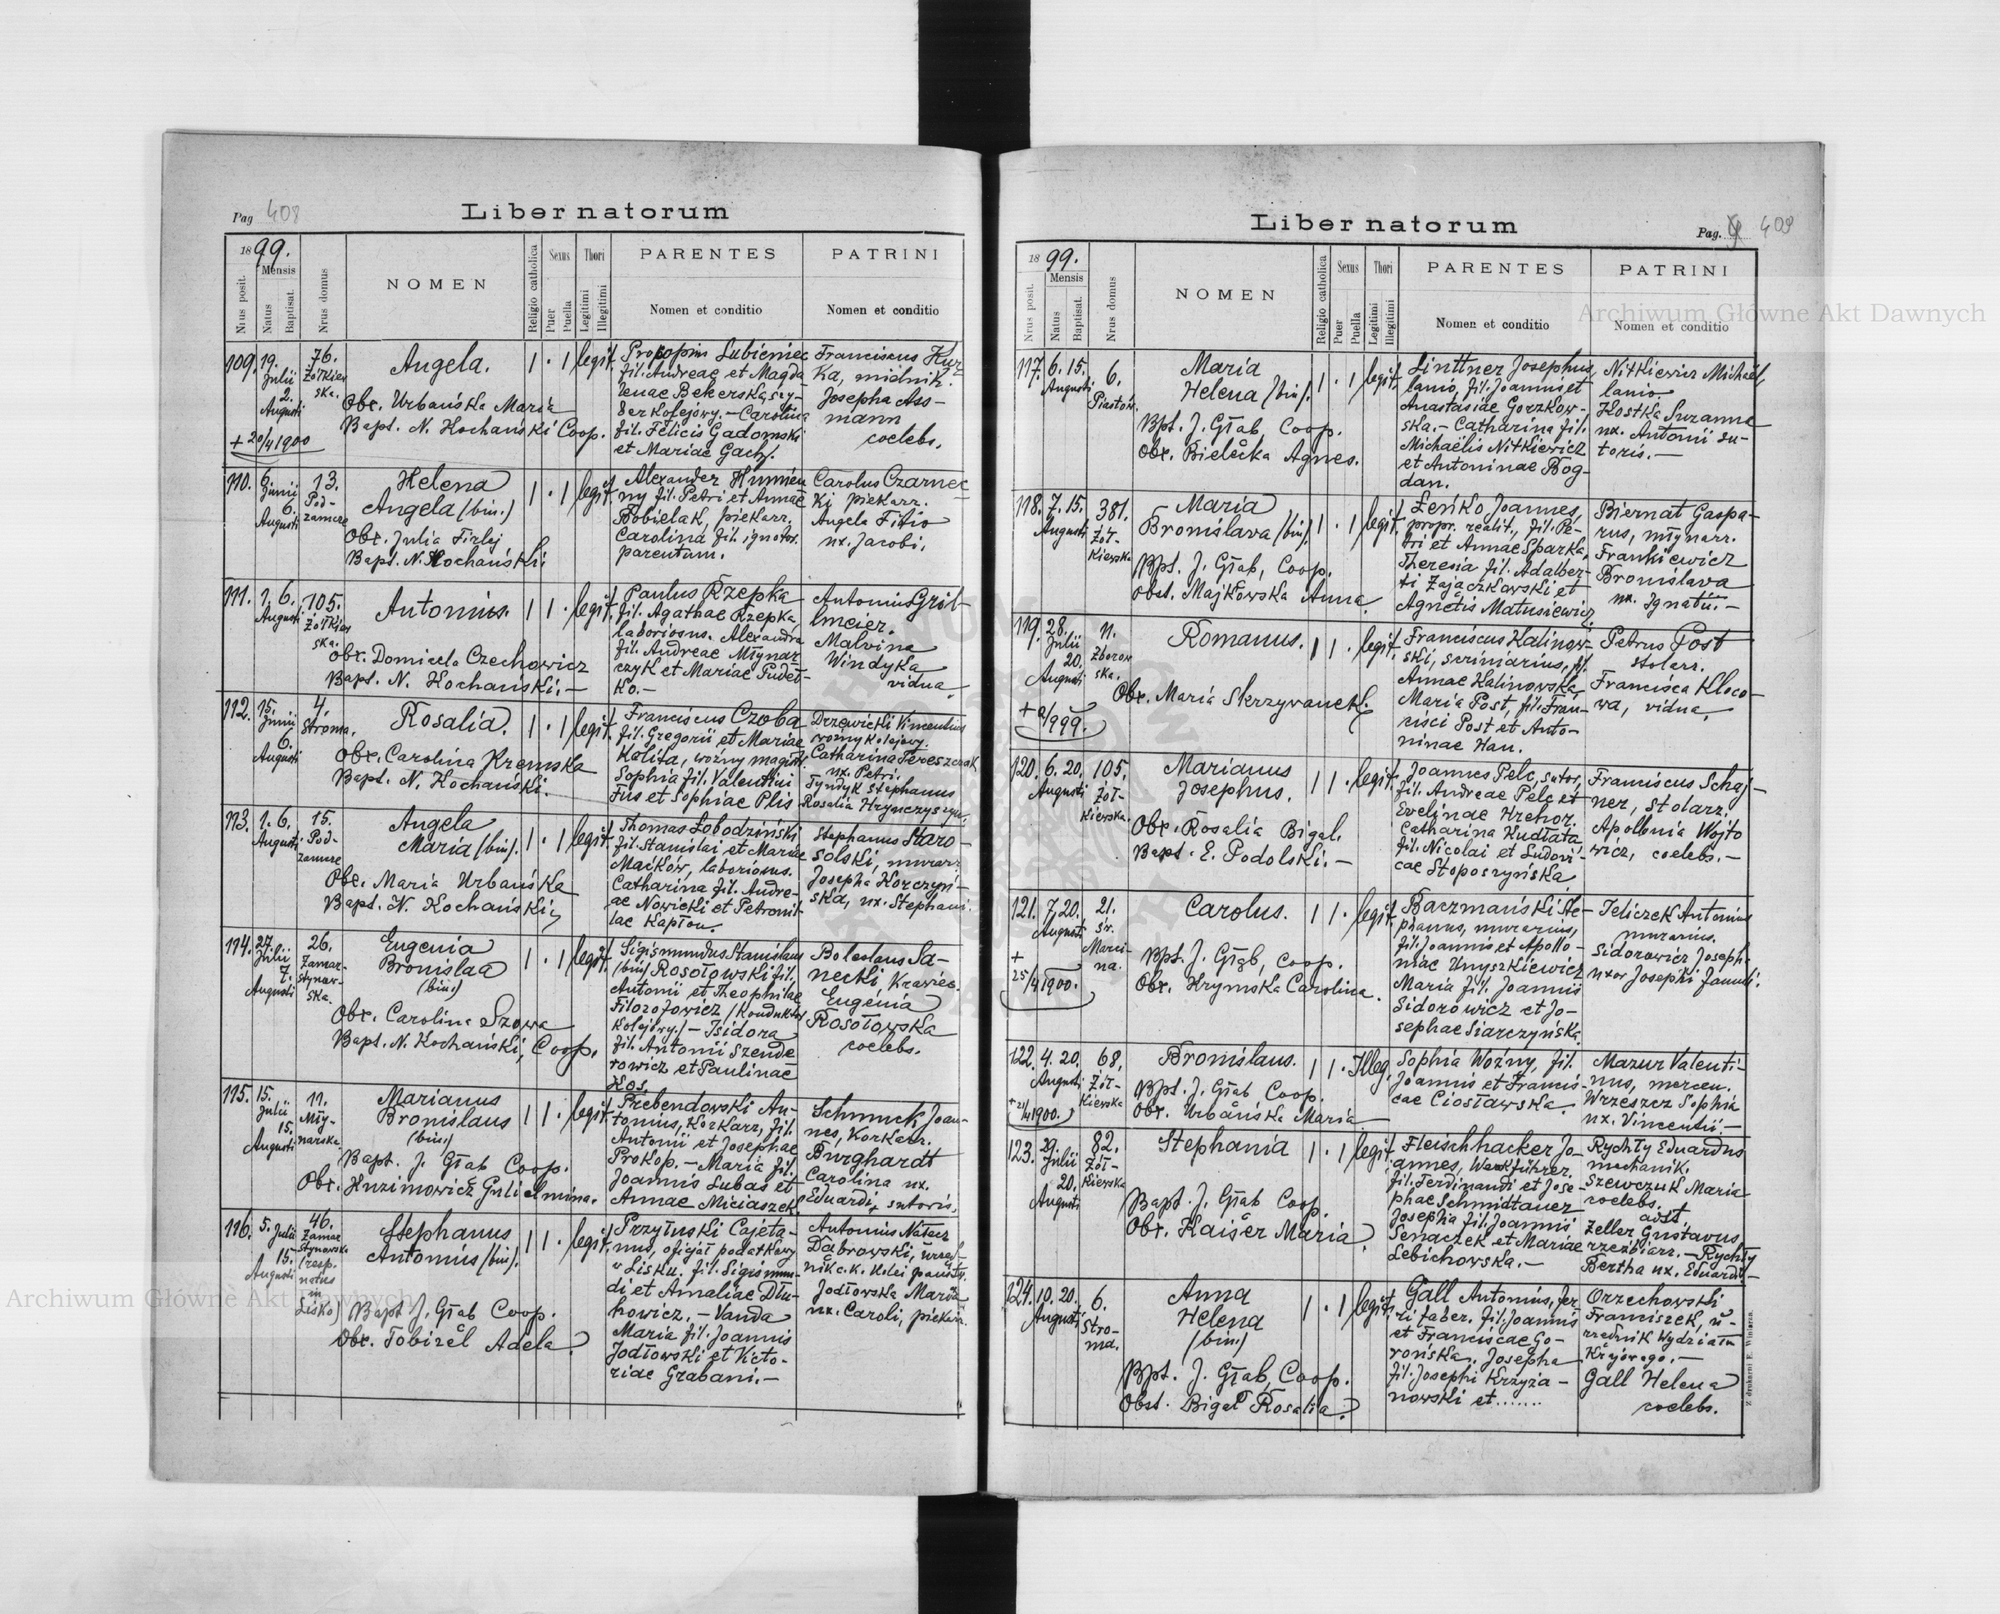 Pag 408
Liber natorum
1899.
Mensis
Nrus posit.
Natus
Baptisat.
Nrus domus
NOMEN
Religio catholica
Sexus
Puer
Puella
Thori
Legitimi
Illegitimi
PARENTES
Nomen et conditio
PATRINI
Nomen et conditio
109. 19. Julii 2. Augusti
+ 20/4 1900
76. Żółkiewska.
Angela.
Obx. Urbańska Maria
Bapt. N. Kochański Coop.
1 · 1 legit.
fil. Andreae et Magda
lenae Bekerska,
kolejowy. – Carolina
fil. Felicis Gadomski
et Mariae Gach.
Franciscus
ka, mielnik.
Josepha Ass-
mann
coelebs.
110. 6. Junii 6. Augusti
13. Pod-
zamcze
Helena
Angela (bin.)
Obx. Julia Firlej
Bapt. N. Kochański.
1 · 1 legit.
Alexander Humien
ny fil. Petri et Annae
Bobielak, piekarz.
Carolina fil. ignotor.
parentum.
Carolus Czarnec
ki piekarz.
Angela Fitio
ux. Jacobi.
111. 1. 6. Augusti
105. Żółkiewska.
Antonius.
Obx. Domicela Czechowicz
Bapt. N. Kochański. –
1 1 · legit.
Paulus Rzepka
fil. Agathae Rzepka
laboriosus. Alexandra
fil. Andreae Młynar
czyk et Mariae Pudeł-
ko. –
Antonius Grib-
lmeier.
Malvina
Windyka
vidua.
112. 15. Junii 6. Augusti
4. Stroma.
Rosalia.
Obx. Carolina Kremska
Bapt. N. Kochański.
1 · 1 legit.
Franciscus Czoba
fil. Gregorii et Mariae
Kalita, woźny magistr.
Sophia fil. Valentini
Fus et Sophiae Plis
Drzewicki Vincentius
woźny kolejowy.
Catharina Tereszczak
ux. Petri.
Tyndyk Stephanus
Rosalia Hrynczyszyn.
113. 1. 6. Augusti
15. Pod-
zamcze
Angela
Maria (bin).
Obx. Maria Urbańska
Bapt. N. Kochański
1 · 1 legit.
Thomas Łobodziński
fil. Stanislai et Mariae
Maćków, laboriosus.
Catharina fil. Andre-
ae Nowicki et Petronil-
lae Kapłon.
Stephanus Staro-
solski, murarz
Josepha Korczyń-
ska, ux. Stephani.
114. 27. Julii 7. Augusti
26. Zamar-
stynow-
ska.
Eugenia
Bronislaa
(bin.)
Obx. Carolina Szowa
Bapt. N. Kochański, Coop.
1 · 1 legit.
Sigismundus Stanislaus
(bin) Rosołowski fil.
Antonii et Theophilae
Filozofowicz /Konduktor
kolejowy./ – Isidora
fil. Antonii Szende
rowicz et Paulinae
Kos.
Boleslaus Sa-
necki, Krawiec.
Eugenia
Rosołowska
coelebs.
115. 15. Julii 15. Augusti
11. Mły-
narska
Marianus
Bronislaus
(bin.)
Bapt. J. Głąb Coop.
Obx. Huzimowicz Gulielmina.
1 1 · legit.
Prebendowski An-
tonius, Kozkarz, fil.
Antonii et Josephae
Prokop. – Maria fil.
Joannis Lubas et
Annae Miciaszek
Schmuck Joan-
nes, Korkarz.
Burghardt
Carolina ux.
Eduardi, sutoris.
116. 5. Julii 15. Augusti
46. Zamar
stynowska
(resp.
natus
in
Lisko)
Stephanus
Antonius (bin).
Bapt J. Głąb Coop.
Obx. Tobizel Adela.
1 1 · legit.
Przyłuski Cajeta-
nus, oficjał podatkowy
w Lisku. fil. Sigismun-
di et Amaliae Dłu-
howicz, – Vanda
Maria fil. Joannis
Jodłowski et Victo-
riae Grabani. –
Antonius Natecz
Dąbrowski, urzęd-
nik c. k. Kolei państw.
Jodłowska Maria
ux. Caroli, piekarz.
Liber natorum
Pag. 409
1899.
Mensis
Nrus posit.
Natus
Baptisat.
Nrus domus
NOMEN
Religio catholica
Sexus
Puer
Puella
Thori
Legitimi
Illegitimi
PARENTES
Nomen et conditio
PATRINI
Nomen et conditio
117. 6. 15. Augusti
6. Piastów.
Maria
Helena (bin).
Bpt. J. Głąb Coop.
Obx. Bielecka Agnes.
1 · 1 legit.
Linttner Josephus,
lanio, fil. Joannis et
Anastasiae Gorzkow-
ska. – Catharina fil.
Michaëlis Nitkiewicz
et Antoninae Bog-
dan.
Nitkiewicz Michaël,
lanio.
Kostka Suzanna
ux. Antonii su-
toris. –
118. 7. 15. Augusti
381. Żół-
kiewska
Maria
Bronislava (bin).
Bpt. J. Głąb, Coop.
Obst. Majkowska Anna.
1 · 1 legit.
Łeńko Joannes,
propr. realit., fil. Pe-
tri et Annae Sparka,
Theresia fil. Adalber-
ti Zajączkowski et
Agnetis Matusiewicz.
Biernat Gaspa-
rus, młynarz.
Frankiewicz
Bronislava
ux. Ignatii. –
119. 28. Julii 20. Augusti
11. Zborow
ska.
Romanus.
Obx. Maria Skrzywanek.
1 1 · legit.
Franciscus Kalinow-
ski, scriniarius, fil.
Annae Kalinowska,
Maria Post, fil. Fran-
cisci Post et Anto-
ninae Hau.
Petrus Post
stolarz.
Francisca Kloco-
wa, vidua.
120. 6. 20. Augusti
105. Żół-
kiewska.
Marianus
Josephus.
Obx. Rosalia Bigal.
Bapt. E. Podolski. –
1 1 · legit.
Joannes Pelc, sutor,
fil. Andreae Pelc et
Evelinae Hrehor.
Catharina Kudłata,
fil. Nicolai et Ludovi-
cae Stoposzyńska
Franciscus Schaj-
ner, stolarz.
Apollonia Wojto
wicz, coelebs. –
121. 7. 20. Augusti
+ 25/4 1900.
21. św.
Marci-
na.
Carolus.
Bpt. J. Głąb, Coop.
Obx. Krymska Carolina.
1 1 · legit.
Baczmański Ste-
phanus, murarius,
fil. Joannis et Apollo-
niae Unyszkiewicz
Maria fil. Joannis
Sidorowicz et Jo-
sephae Siarczyńska
Teliczek Antonius
murarius.
Sidorowicz Joseph.
uxor Josephi famuli.
122. 4. 20. Augusti
68. Żół-
kiewska
Bronislaus.
Bpt. J. Głąb, Coop.
Obx. Urbańska Maria
1 1 · Illeg.
Sophia Woźny, fil.
Joannis et Francis-
cae Ciosławska.
Mazur Valenti-
nus, mercen.
Wrzeszcz Sophia
ux. Vincentii. –
123. 29. Julii 20. Augusti
82. Żół-
kiewska
Stephania
Bapt. J. Głąb Coop.
Obx. Kaiser Maria.
1 · 1 legit
Fleischhacker Jo-
annes, Werkführer.
fil. Ferdinandi et Jose-
phae Schmidtauer
Josepha fil. Joannis
Senaczek et Mariae
Lebichowska. –
Rychły Eduardus
mechanik.
Szewczuk Maria
coelebs.
Zeller Gustavus,
rzeźbiarz. – Rychły
Bertha ux. Eduardi –
124. 10. 20. Augusti
6. Stro-
ma.
Anna
Helena
(bin.)
Bpt. J. Głąb, Coop.
Obst. Bigał Rosalia.
1 · 1 legit.
Gall Antonius, fer
ri faber. fil. Joannis
et Franciscae Go-
rońska. Josepha
fil. Josephi Krzyża-
nowski et .......
Orzechowski
Franciszek, u-
rzędnik Wydziału
Krajowego. –
Gall Helena
coelebs.
Z drukarni E. Winiarza.
Archiwum Główne Akt Dawnych
Archiwum Główne Akt Dawnych